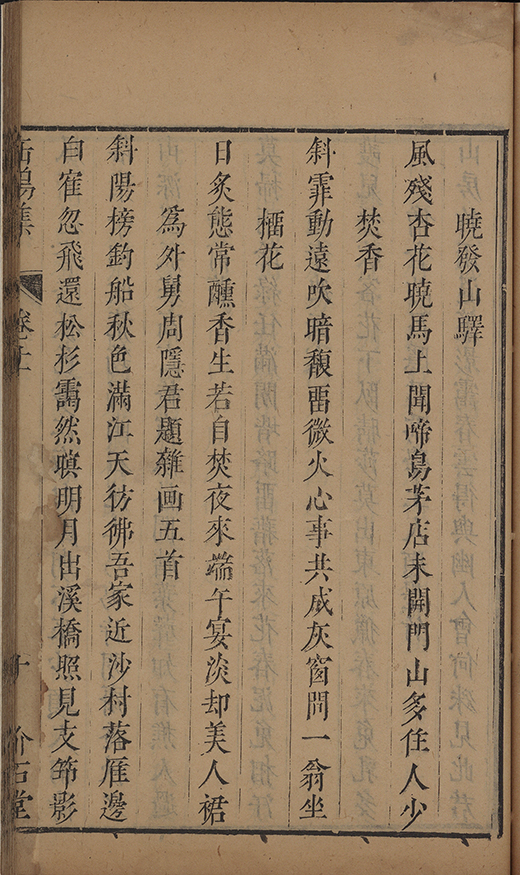 曉發山驛
風殘杏花曉馬上聞啼鳥茅店未開門山多住人少
焚香
斜霏動遠吹暗馥畱微火心事共成灰窗間一翁坐
榴花
日炙態常醺香生若自焚夜來端午宴淡却美人裙
爲外舅周隱君題雜画五首
斜陽榜釣船秋色滿江天彷彿吾家近沙村落雁邊
白隺忽飛還松杉靄然暝明月出溪橋照見支筇影
集
十
介石堂